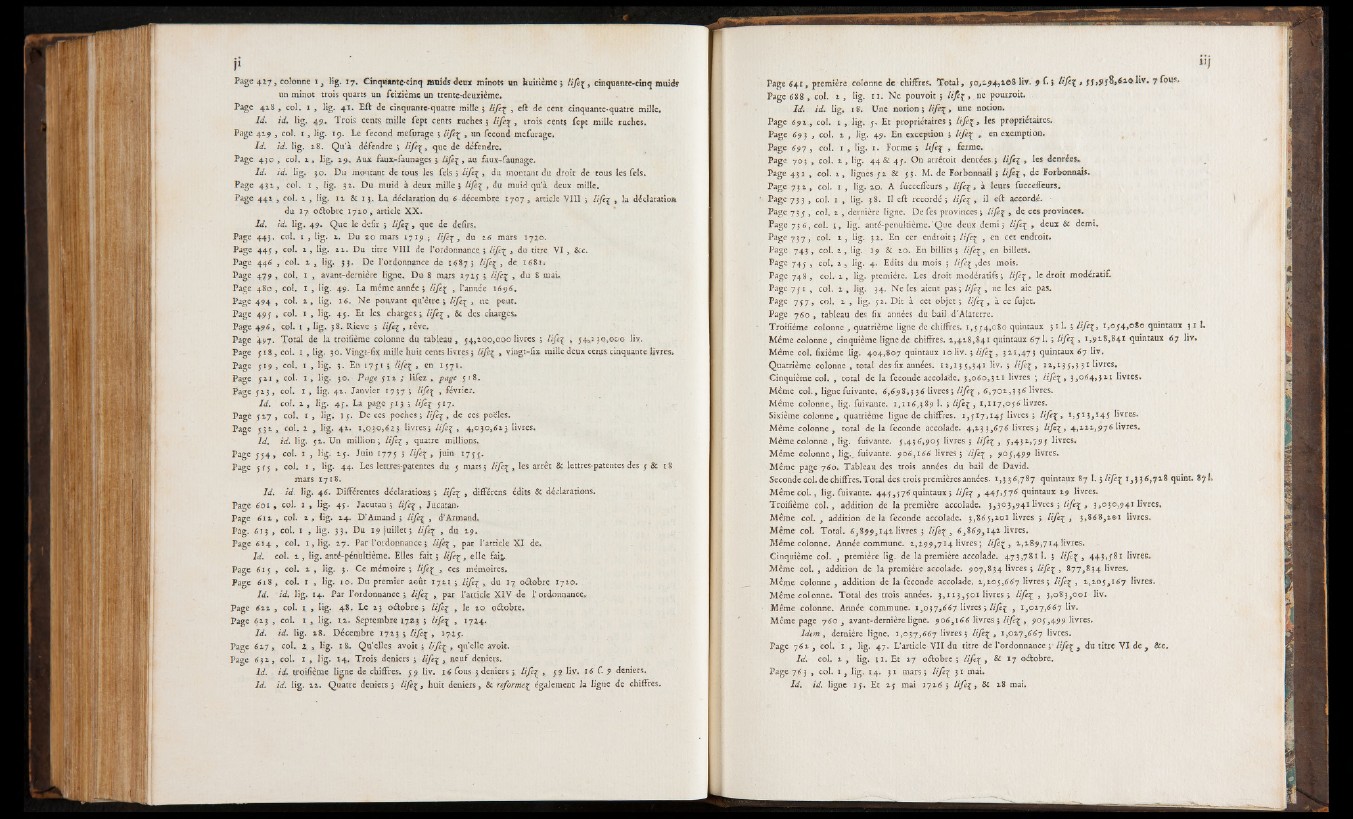 ij
Page 427, colonne 1, lig. 17. Cinquante-cinq muids deux minots un huitième ; lisez, cinquante-cinq muids
un minot trois quarts un seizième un trente-deuxième.
Page 428, col. 1, lig. 41. Est de cinquante-quatre mille ; lisez, est de cent cinquante-quatre mille.
Id. id. lig. 49. Trois cents mille sept cents ruches ; lisez, trois cents sept mille ruches.
Page 429, col. 1, lig. 19. Le second mesurage ; lisez, un second mesurage.
Id. id. lig. 28. Qu'à défendre ; lisez, que de défendre.
Page 430, col. 2, lig. 29. Aux faux-saunages ; lisez, au faux-saunage.
Id. id. lig. 30. Du montant de tous les sels ; lisez, du montant du droit de tous les sels.
Page 432, col. 1, lig. 32. Du muid à deux mille ; lisez, du muid qu'à deux mille.
Page 442, col. 2, lig. 12 & 13. La déclaration du 6 décembre 1707, article VIII ; lisez, la déclaration
du 17 octobre 1720, article XX.
Id. id. lig. 49. Que le desir ; lisez, que de desirs.
Page 443, col. 1, lig. 2. Du 20 mars 1719 ; lisez, du 26 mars 1720.
Page 445, col. 2, lig. 22. Du titre VIII de l'ordonnance ; lisez, du titre VI, &c.
Page 446, col. 2, lig. 53. De l'ordonnance de 1687 ; lisez, de 1681.
Page 479, col. 1, avant-dernière ligne. Du 8 mars 1725 ; lisez, du 8 mai.
Page 480, col. 1, lig. 49. La même année ; lisez, l'année 1696.
Page 494, col. 2, lig. 16. Ne pouvant qu'être ; lisez, ne peut.
Page 495, col. 1, lig. 45. Et les charges ; lisez, & des charges.
Page 496, col. 1, lig. 38. Rieve ; lisez, rève.
Page 497. Total de la troisième colonne du tableau, 54,200,000 livres ; lisez, 54,230,000 liv.
Page 518, col. 1, lig. 30. Vingt-six mille huit cents livres ; lisez, vingt-six mille deux cents cinquante livres.
Page 519, col. 1, lig. 3. En 1751 ; lisez, en 1571.
Page 521, col. 1, lig. 30. Page 512 ; lisez, page 518.
Page 523, col. 1, lig. 42. Janvier 1737 ; lisez, février.
Id. col. 2, lig. 45. La page 513 ; lisez 517.
Page 527, col. 1, lig. 15. De ces poches ; lisez, de ces poëles.
Page 532, col. 2, lig. 42. 1,030,623 livres ; lisez, 4,030,623 livres.
Id. id. lig. 52. Un million ; lisez, quatre millions.
Page 554, col. 1, lig. 25. Juin 1775 ; lisez, juin 1755.
Page 555, col. 1, lig. 44. Les lettres-patentes du 5 mars ; lisez, les arrêt & lettres-patentes des 5 & 18
mars 1718.
Id. id. lig. 46. Différentes déclarations ; lisez, différens édits & déclarations.
Page 601, col. 1, lig. 45. Jacutan ; lisez, Jucatan.
Page 612, col. 2, lig. 24. D'Amand ; lisez, d'Armand.
Pag. 613, col. 1, lig. 33. Du 19 juillet ; lisez, du 29.
Page 614, col. 1, lig. 27. Par l'ordonnance ; lisez, par l'article XI de.
Id. col. 2, lig. anté-pénultième. Elles fait ; lisez, elle fait.
Page 615, col. 2, lig. 3. Ce mémoire ; lisez, ces mémoires.
Page 618, col. 1, lig. 10. Du premier août 1721 ; lisez, du 17 octobre 1720.
Id. id. lig. 14. Par l'ordonnance ; lisez, par l'article XIV de l'ordonnance.
Page 622, col. 1, lig. 48. Le 23 octobre ; lisez, le 20 octobre.
Page 623, col. 1, lig. 12. Septembre 1723 ; lisez, 1724.
Id. id. lig. 28. Décembre 1723 ; lisez, 1725.
Page 627, col. 2, lig. 18. Qu'elles avoit ; lisez, qu'elle avoit.
Page 632, col. 1, lig. 14. Trois deniers ; lisez, neuf deniers.
Id. id. troisième ligne de chiffres. 59 liv. 16 sous 3 deniers ; lisez, 59 liv. 16 s. 9 deniers.
Id. id. lig. 22. Quatre deniers ; lisez, huit deniers, & reformez également la ligne de chiffres.
iij
Page 641, première colonne de chiffres. Total, 50,294,208 liv. 9 s. ; lisez, 55,958,620 liv. 7 sous.
Page 688, col. 2, lig. 11. Ne pouvoit ; lisez, ne pourroit.
Id. id. lig. 18. Une notion ; lisez, une notion.
Page 692, col. 1, lig. 5. Et propriétaires ; lisez, les propriétaires.
Page 693, col. 2, lig. 49. En exception ; lisez, en exemption.
Page 697, col. 1, lig. 1. Forme ; lisez, ferme.
Page 703, col. 2, lig. 44 & 45. On arrêtoit denrées ; lisez, les denrées.
Page 432, col. 2, lignes 52 & 53. M. de Forbonnail ; lisez, de Forbonnais.
Page 732, col. 1, lig. 20. A successeurs, lisez, à leurs successeurs.
Page 733, col. 1, lig. 38. Il est recordé ; lisez, il est accordé.
Page 735, col. 2, dernière ligne. De ses provinces ; lisez, de ces provinces.
Page 736, col. 1, lig. anté-penultième. Que deux demi ; lisez, deux & demi.
Page 737, col. 2, lig. 32. En cer endroit ; lisez, en cet endroit.
Page 743, col. 2, lig. 19 & 20. En billits ; lisez, en billets.
Page 745, col. 2, lig. 4. Edits du mois ; lisez, des mois.
Page 748, col. 2, lig. première. Les droit modératifs ; lisez, le droit modératif.
Page 751, col. 2, lig. 34. Ne les aient pas ; lisez, ne les aie pas.
Page 757, col. 2, lig. 52. Dit à cet objet ; lisez, à ce sujet.
Page 760, tableau des six années du bail d'Alaterre.
Troisième colonne, quatrième ligne de chiffres. 1,554,080 quintaux 31 l. ; lisez, 1,054,080 quintaux 31 l.
Même colonne, cinquième ligne de chiffres. 2,428,841 quintaux 67 l. ; lisez, 1,928,841 quintaux 67 liv.
Même col. sixième lig. 404,807 quintaux 10 liv. ; lisez, 321,473 quintaux 67 liv.
Quatrième colonne, total des six années. 12,135,341 liv. ; lisez, 12,135,331 livres.
Cinquième col., total de la seconde accolade. 3,060,321 livres ; lisez, 3,064,321 livres.
Même col., ligne suivante. 6,698,336 livres ; lisez, 6,702,336 livres.
Même colonne, lig. suivante. 1,116,389 l. ; lisez, 1,117,056 livres.
Sixième colonne, quatrième ligne de chiffres. 1,517,145 livres ; lisez, 1,513,145 livres.
Même colonne, total de la seconde accolade. 4,233,676 livres ; lisez, 4,222,976 livres.
Même colonne, lig. suivante. 5,436,905 livres ; lisez, 5,432,795 livres.
Même colonne, lig. suivante. 906,166 livres ; lisez, 905,499 livres.
Même page 760. Tableau des trois années du bail de David.
Seconde col. de chiffres. Total des trois premières années. 1,336,787 quintaux 87 l. ; lisez 1,336,728 quint. 87 l.
Même col., lig. suivante. 445,576 quintaux ; lisez, 445,576 quintaux 29 livres.
Troisième col., addition de la première accolade. 3,303,941 livres ; lisez, 3,030,941 livres.
Même col., addition de la seconde accolade. 3,865,201 livres ; lisez, 3,868,201 livres.
Même col. Total. 6,899,142 livres ; lisez, 6,869,142 livres.
Même colonne. Année commune. 2,299,714 livres ; lisez, 2,289,714 livres.
Cinquième col., première lig. de la première accolade. 473,781 l. ; lisez, 443,581 livres.
Même col., addition de la première accolade. 907,834 livres ; lisez, 877,834 livres.
Même colonne, addition de la seconde accolade. 2,205,667 livres ; lisez, 2,205,167 livres.
Même colonne. Total des trois années. 3,113,501 livres ; lisez, 3,083,001 liv.
Même colonne. Année commune. 1,037,667 livres ; lisez, 1,027,667 liv.
Même page 760, avant-dernière ligne. 906,166 livres ; lisez, 905,499 livres.
Idem, dernière ligne. 1,037,667 livres ; lisez, 1,027,667 livres.
Page 762, col. 1, lig. 47. L'article VII du titre de l'ordonnance ; lisez, du titre VI de, &c.
Id. col. 2, lig. 11. Et 27 octobre ; lisez, & 17 octobre.
Page 763, col. 1, lig. 14. 31 mars ; lisez 31 mai.
Id. id. ligne 15. Et 25 mai 1726 ; lisez, & 28 mai.